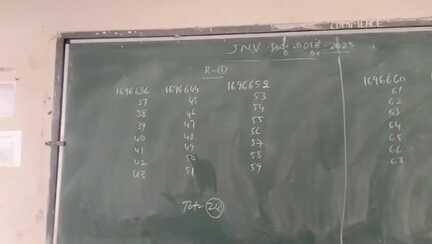 JNV
R-①
1696636 1696644 1696652
37 45 53
38 46 54
39 47 55
40 48 56
41 49 57
42 50 58
43 51 59
Total 24
1696660
61
62
63
64
65
66